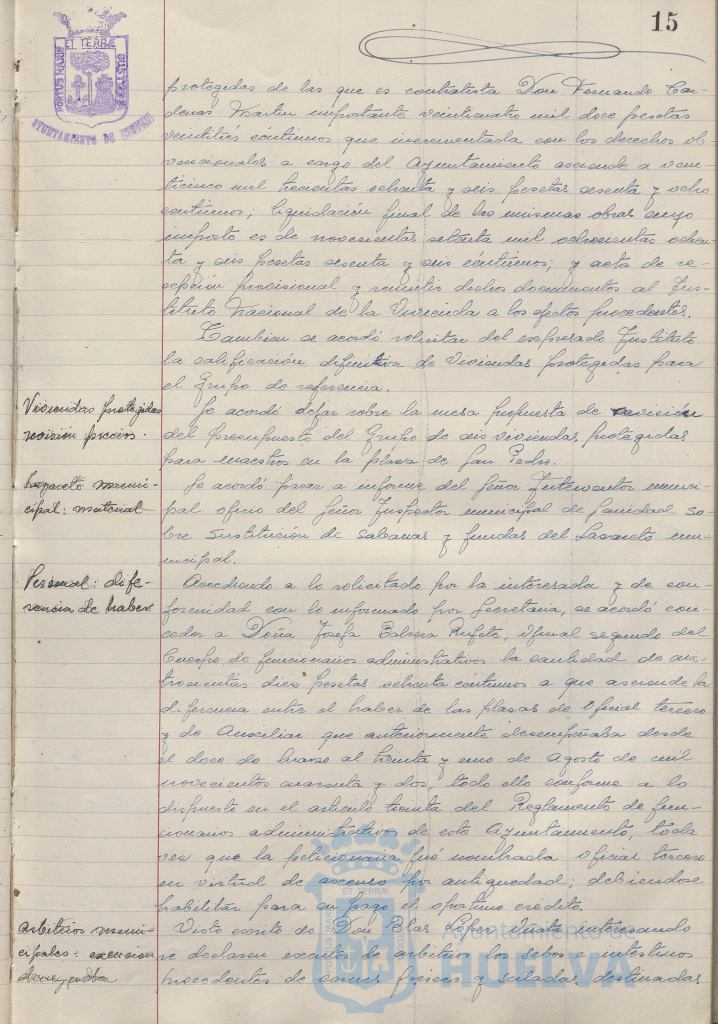 15
PORTUS MARIS ET TERRÆ CUSTODIA
AYUNTAMIENTO DE HUELVA
protegidas de las que es contratista Don Fernando Cár-
denas Martín importante veinticuatro mil doce pesetas
veintitrés céntimos que incrementada con los derechos ob-
vencionales a cargo del Ayuntamiento asciende a vein-
ticinco mil trecientas ochenta y seis pesetas sesenta y ocho
centimos; liquidación final de las mismas obras cuyo
importe es de novecientas setenta mil ochocientas ochen-
ta y seis pesetas sesenta y seis céntimos; y acta de re-
cepción provisional y remitir dichos documentos al Ins-
tituto Nacional de la Vivienda a los efectos procedentes.
Tambien se acordó solicitar del expresado Instituto
la calificación definitiva de Viviendas protegidas para
el Grupo de referencia.
Viviendas protegidas
revisión precios.
Se acordó dejar sobre la mesa propuesta de revición
del presupuesto del Grupo de seis viviendas protegidas
para maestros en la plaza de San Pedro.
Lazareto muni-
cipal: material
Se acordó pasar a informe del Señor Interventor munici-
pal oficio del Señor Inspector municipal de Sanidad so-
bre sustitución de sabanas y fundas del Lazareto mu-
nicipal.
Personal: dife-
rencia de haber
Accediendo a lo solicitado por la interesada y de con-
formidad con lo informado por Secretaria, se acordó con-
ceder a Doña Josefa Balsera Rufete, oficial segundo del
Cuerpo de funcionarios administrativos la cantidad de cua-
trocientas diez pesetas ochenta céntimos a que asciende la
diferencia entre el haber de las plazas de Oficial tercero
y de Auxiliar que anteriormente desempeñaba desde
el doce de Marzo al treinta y uno de Agosto de mil
novecientos cuarenta y dos, todo ello conforme a lo
dispuesto en el articulo treinta del Reglamento de fun-
cionarios administrativos de este Ayuntamiento, toda
vez que la peticionaria fué nombrada oficial tercero
en virtud de ascenso por antiguedad; debiendose
habilitar para su pago el oportuno crédito.
Arbitrios muni-
cipales: exencion
Visto escrito de Don Blas interesando
se declaren exentos de arbitrios los sebos e intestinos
procedentes de carnes frescas y saladas destinadas
Ayuntamiento de
HUELVA